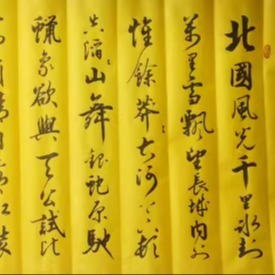 北國風光千里冰封
萬里雪飄望長城內外
惟餘莽々大河上下頓
失滔々山舞銀蛇原馳
蠟象欲與天公試比